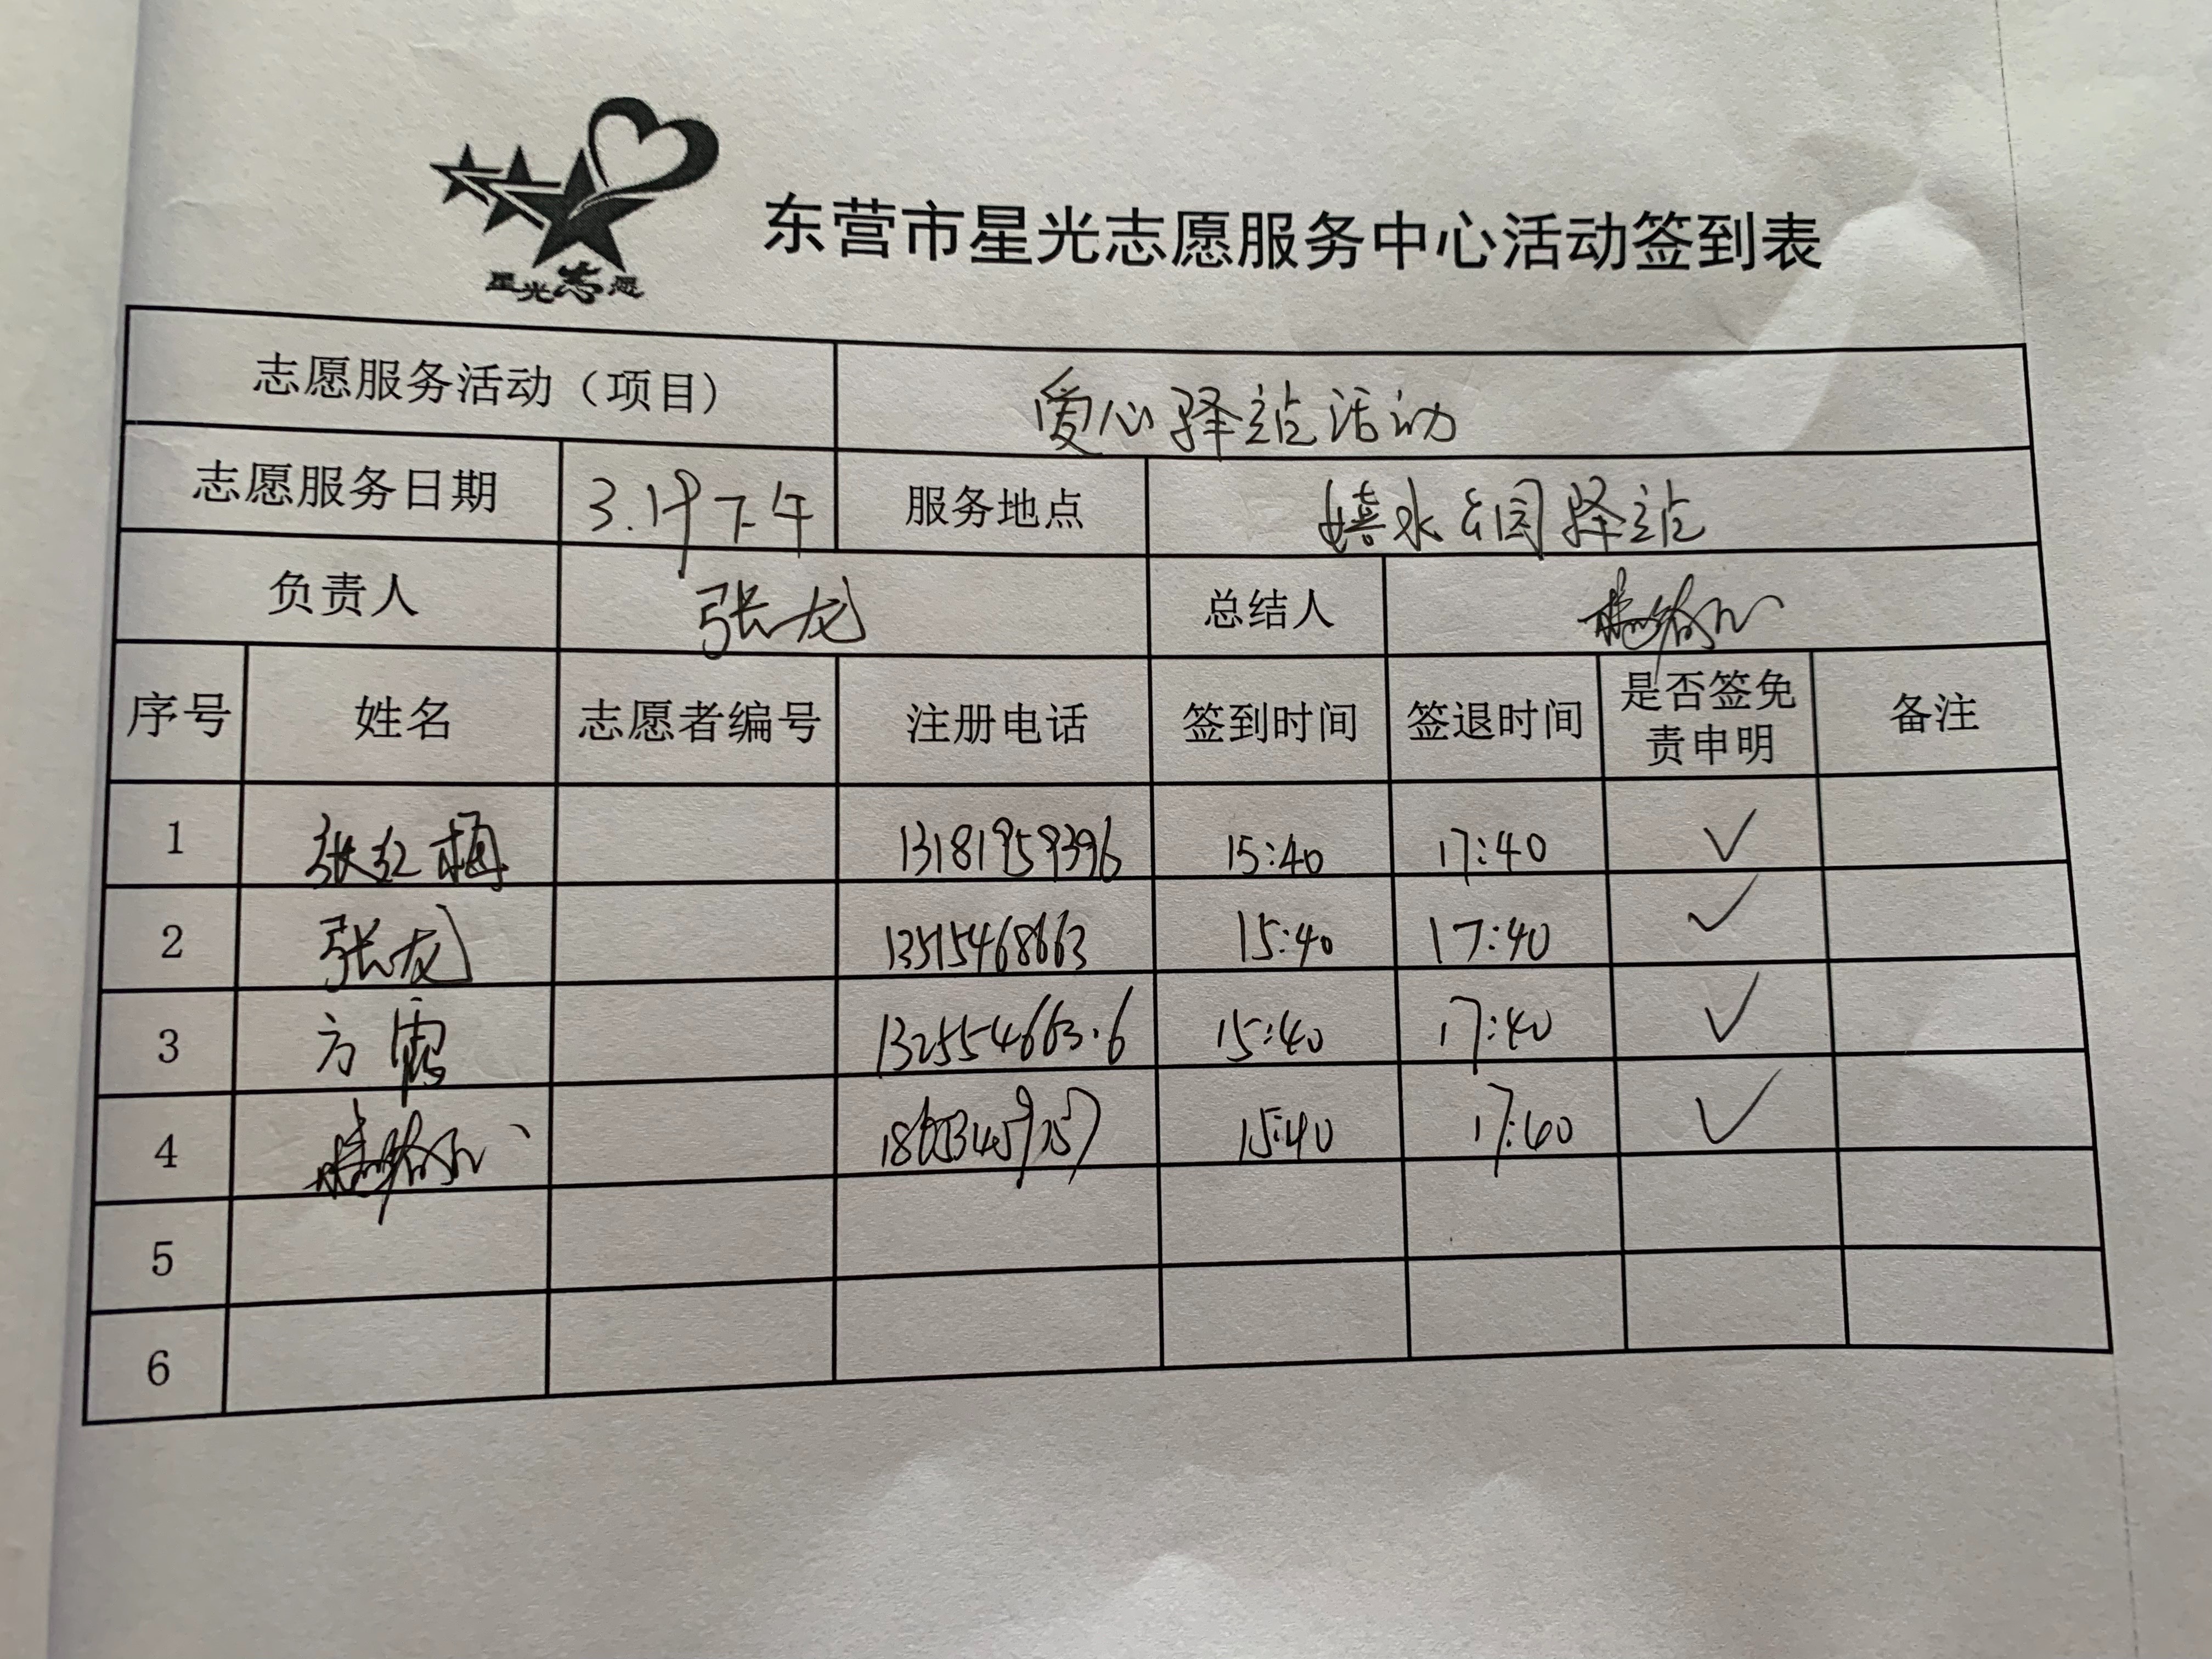 星光志愿
东营市星光志愿服务中心活动签到表
志愿服务活动（项目） 爱心驿站活动
志愿服务日期 3.19下午 服务地点 嬉水公园驿站
负责人 张龙 总结人
序号 姓名 志愿者编号 注册电话 签到时间 签退时间 是否签免责申明 备注
1 张红梅 13181959396 15:40 17:40 ✓
2 张龙 13515468663 15:40 17:40 ✓
3 方霞 132554663·6 15:40 17:40 ✓
4 15:40 17:40 ✓
5
6